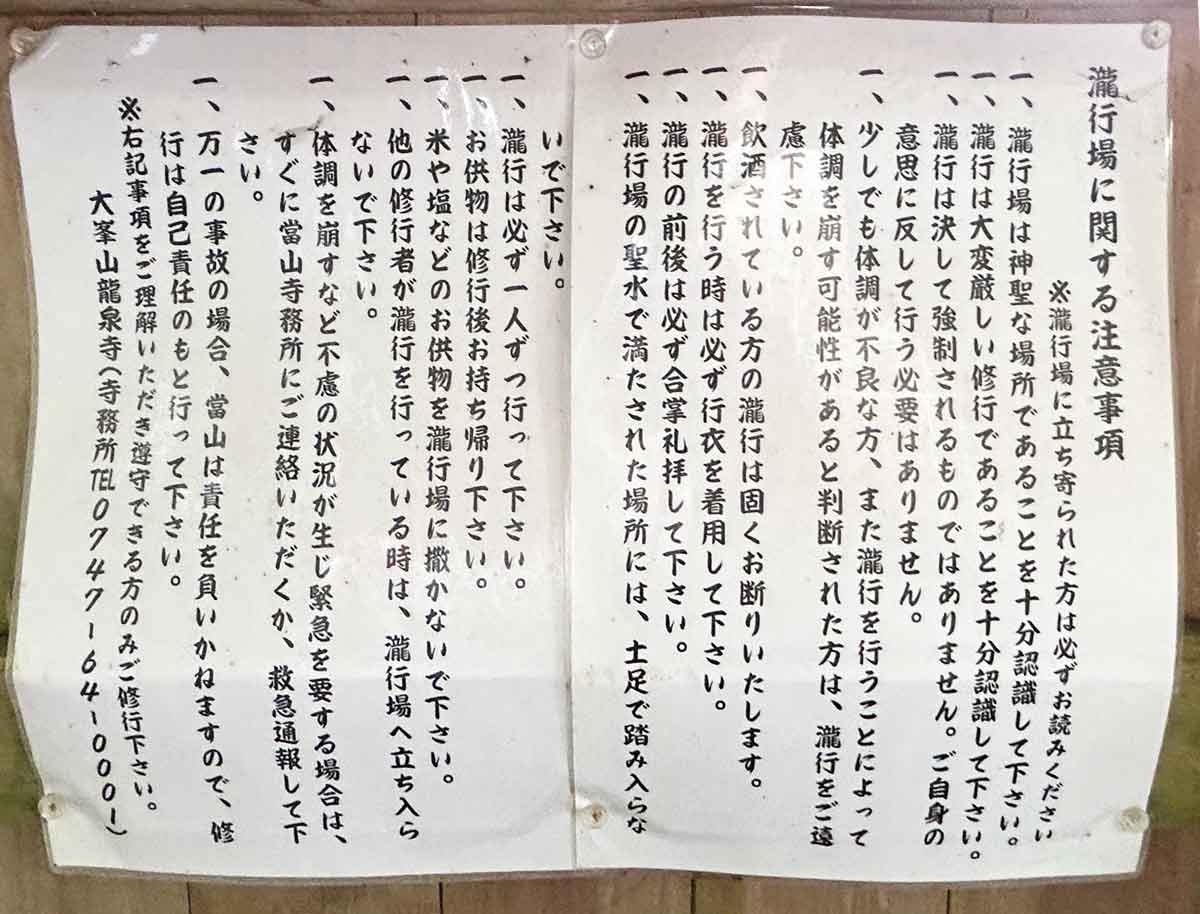 瀧行場に関する注意事項
※瀧行場に立ち寄られた方は必ずお読みください
一、瀧行場は神聖な場所であることを十分認識して下さい。
一、瀧行は大変厳しい修行であることを十分認識して下さい。
一、瀧行は決して強制されるものではありません。ご自身の
意思に反して行う必要はありません。
一、少しでも体調が不良な方、また瀧行を行うことによって
体調を崩す可能性があると判断された方は、瀧行をご遠
慮下さい。
一、飲酒されている方の瀧行は固くお断りいたします。
一、瀧行を行う時は必ず行衣を着用して下さい。
一、瀧行の前後は必ず合掌礼拝して下さい。
一、瀧行場の聖水で満たされた場所には、土足で踏み入らな
いで下さい。
一、瀧行は必ず一人ずつ行って下さい。
一、お供物は修行後お持ち帰り下さい。
一、米や塩などのお供物を瀧行場に撒かないで下さい。
一、他の修行者が瀧行を行っている時は、瀧行場へ立ち入ら
ないで下さい。
一、体調を崩すなど不慮の状況が生じ緊急を要する場合は、
すぐに當山寺務所にご連絡いただくか、救急通報して下
さい。
一、万一の事故の場合、當山は責任を負いかねますので、修
行は自己責任のもと行って下さい。
※右記事項をご理解いただき遵守できる方のみご修行下さい。
大峯山龍泉寺(寺務所TEL0747-64-0001)